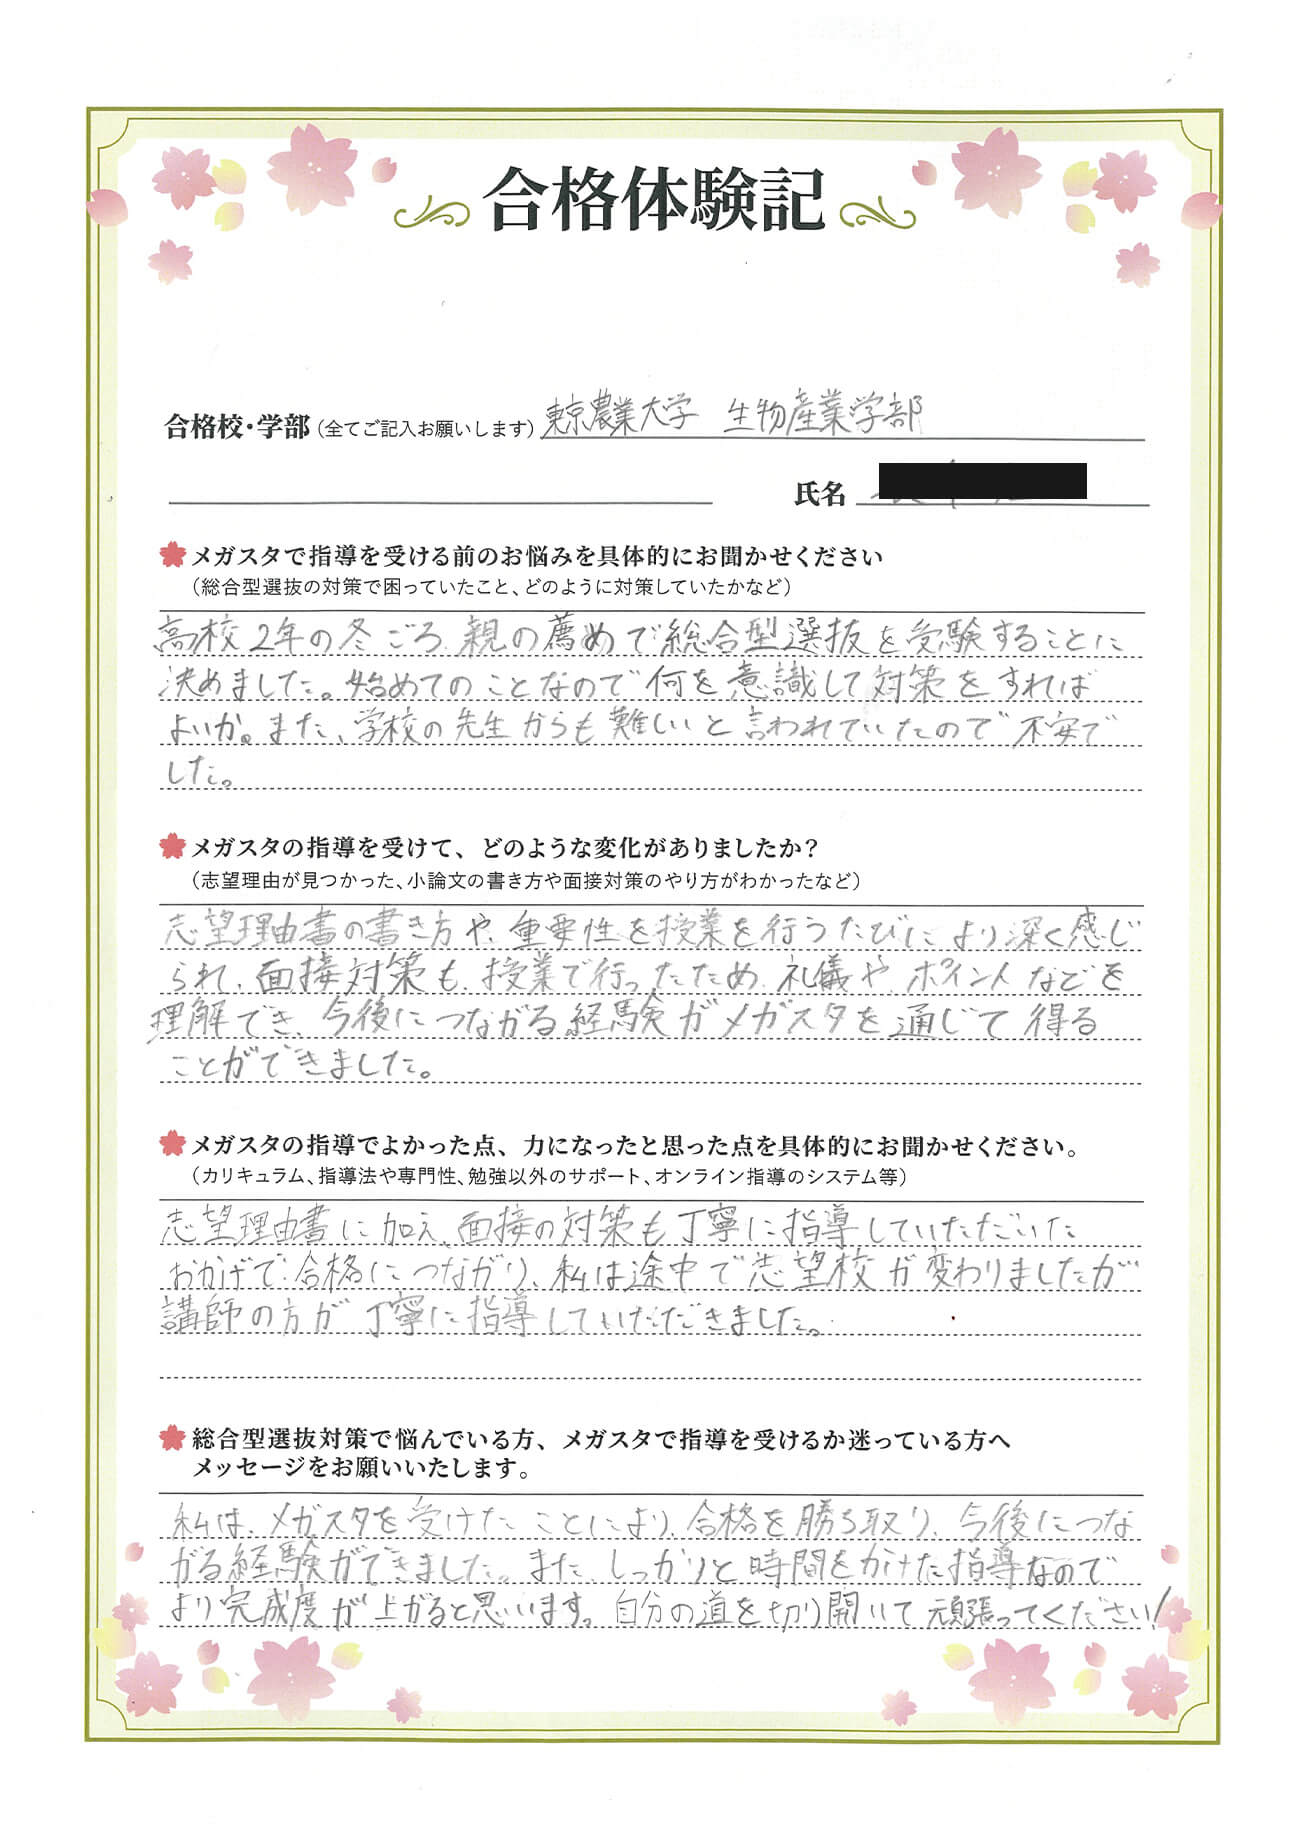 合格体験記
合格校・学部（全てご記入お願いします）東京農業大学 生物産業学部
氏名
メガスタで指導を受ける前のお悩みを具体的にお聞かせください
（総合型選抜の対策で困っていたこと、どのように対策していたかなど）
高校2年の冬ごろ、親の薦めで総合型選抜を受験することに
決めました。始めてのことなので何を意識して対策をすれば
よいか。また、学校の先生からも難しいと言われていたので不安で
した。
メガスタの指導を受けて、どのような変化がありましたか？
（志望理由が見つかった、小論文の書き方や面接対策のやり方がわかったなど）
志望理由書の書き方や、重要性を授業を行うたびにより深く感じ
られ、面接対策も、授業で行ったため、礼儀や、ポイントなどを
理解でき、今後につながる経験がメガスタを通じて得る
ことができました。
メガスタの指導でよかった点、力になったと思った点を具体的にお聞かせください。
（カリキュラム、指導法や専門性、勉強以外のサポート、オンライン指導のシステム等）
志望理由書に加え、面接の対策も丁寧に指導していただいた
おかげで、合格につながり、私は途中で志望校が変わりましたが
講師の方が丁寧に指導していただきました。
総合型選抜対策で悩んでいる方、メガスタで指導を受けるか迷っている方へ
メッセージをお願いいたします。
私は、メガスタを受けたことにより、合格を勝ち取り、今後につな
がる経験ができました。また、しっかりと時間をかけた指導なので
より完成度が上がると思います。自分の道を切り開いて頑張ってください！